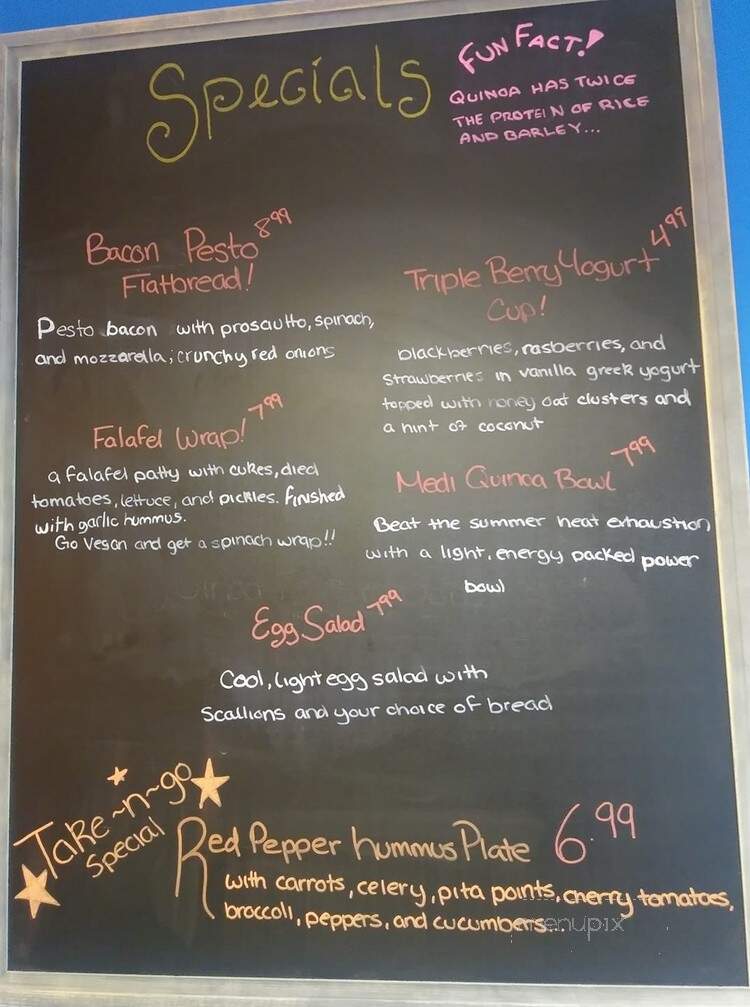 Specials
FUN FACT!
QUINOA HAS TWICE
THE PROTEIN OF RICE
AND BARLEY...
Bacon Pesto 8.99
Flatbread!
Pesto bacon with prosautto, spinach,
and mozzarella; crunchy red onions
Falafel Wrap! 7.99
a falafel patty with cukes, died
tomatoes, lettuce, and pickles. finished
with garlic hummus.
Go Vegan and get a spinach wrap!!
Triple Berry Yogurt 4.99
Cup!
blackberries, rasberries, and
strawberries in vanilla greek yogurt
topped with honey oat clusters and
a hint of coconut
Medi Quinoa Bowl 7.99
Beat the summer heat exhaustion
with a light, energy packed power
bowl
Egg Salad 7.99
Cool, light egg salad with
Scallions and your choice of bread
Take~n~go
Special
Red Pepper hummus Plate 6.99
with carrots, celery, pita points, cherry tomatoes,
broccoli, peppers, and cucumbers...
menupix